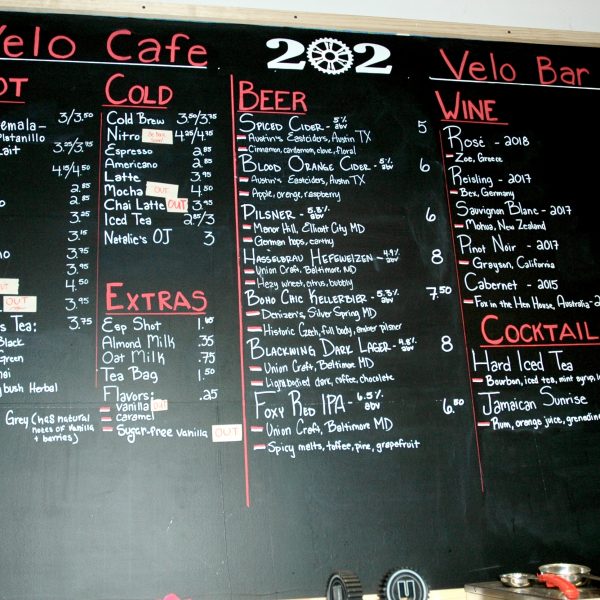 Velo Cafe
202
Velo Bar
OT
emala-
3/3.50
Platanillo
Lait
3.25/3.75
4.25/4.50
2.85
2.85
3.25
3.15
3.75
3.95
4.50
OUT
3.95
s Tea:
3.75
Black
Green
hai
ybush Herbal
Grey (has natural
notes of vanilla
+ berries)
COLD
Cold Brew 3.50/3.75
Nitro 4.25/4.75
Espresso 2.85
Americano 2.85
Latte 3.95
Mocha OUT 4.50
Chai Latte OUT 3.95
Iced Tea 2.85/3
Natalie's OJ 3
EXTRAS
Esp Shot
Almond Milk .35
Oat Milk .75
Tea Bag 1.50
Flavors: .25
vanilla OUT
caramel
Sugar-free vanilla OUT
BEER
Spiced Cider - 5% abv 5
Austin's Eastciders, Austin TX
Cinnamon, cardamom, clove, floral
Blood Orange Cider - 5% abv 6
Austin's Eastciders, Austin TX
Apple, orange, raspberry
Pilsner - 5.3% abv 6
Manor Hill, Ellicott City MD
German hops, earthy
Hasselbrau Hefeweizen - 4.9% abv 8
Union Craft, Baltimore MD
Hezy wheat, citrus, bubbly
Boho Chic Kellerbier - 5.3% abv 7.50
Denizen's, Silver Spring MD
Historic Czech, full body, amber pilsner
Blackwing Dark Lager - 4.8% abv 8
Union Craft, Baltimore MD
Light bodied dark, coffee, chocolate
Foxy Red IPA - 6.5% abv 6.50
Union Craft, Baltimore MD
Spicy melts, toffee, pine, grapefruit
WINE
Rosé - 2018
Zoe, Greece
Reisling - 2017
Bex, Germany
Sauvignon Blanc - 2017
Mohua, New Zealand
Pinot Noir - 2017
Grayson, California
Cabernet - 2015
Fox in the Hen House, Australia - 2
COCKTAIL
Hard Iced Tea
Bourbon, iced tea, mint syrup, l
Jamaican Sunrise
Rum, orange juice, grenadine